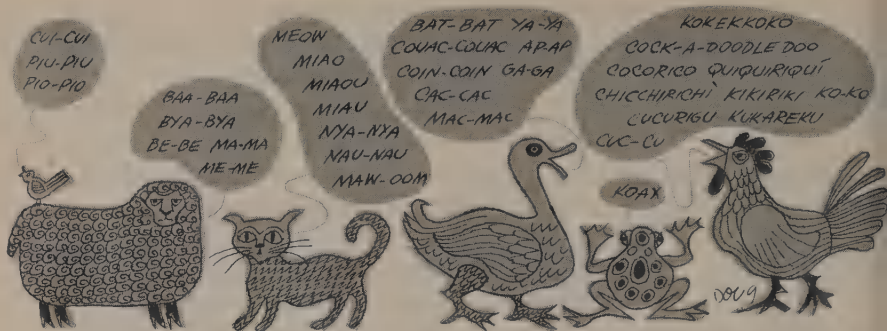 CUI-CUI
PIU-PIU
PIO-PIO
BAA-BAA
BYA-BYA
BE-BE MA-MA
ME-ME
MEOW
MIAO
MIAOU
MIAU
NYA-NYA
NAU-NAU
MAW-OOM
BAT-BAT YA-YA
COUAC-COUAC AP-AP
COIN-COIN GA-GA
CAC-CAC
MAC-MAC
KOKEKKOKO
COCK-A-DOODLE DOO
COCORICO QUIQUIRIQUÍ
CHICCHIRICHÌ KIKIRIKI KO-KO
CUCURIGU KUKAREKU
CUC-CU
KOAX
DOUG